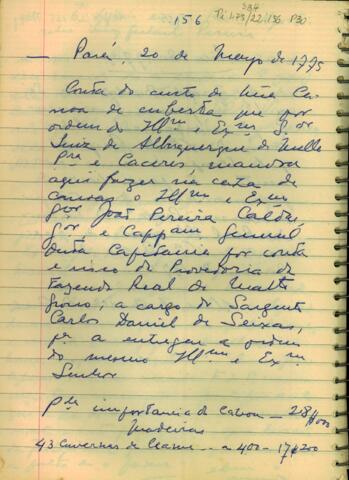 156
P: 173/22/156 P30
— Pará, 20 de Março de 1775
Conta do custo de hũa Ca-
noa de cuberta que por
ordem do Illm e Exm S.or
Luiz de Albuquerque de Mello
Pra e Caceres mandou
aqui fazer na costa de
o Illm e Exm
Snr João Pereira Caldas
Gor e Cappam General
desta Capitania por conta
e risco da Provedoria da
Fazenda Real de Matto
grosso; a cargo do Sargento
Carlos Daniel de Seixas,
pa a entregar a ordem
do mesmo Illm e Exm
Senhor
pla importancia do
Madeiras
43 Cavernas de a 400 - 17$200